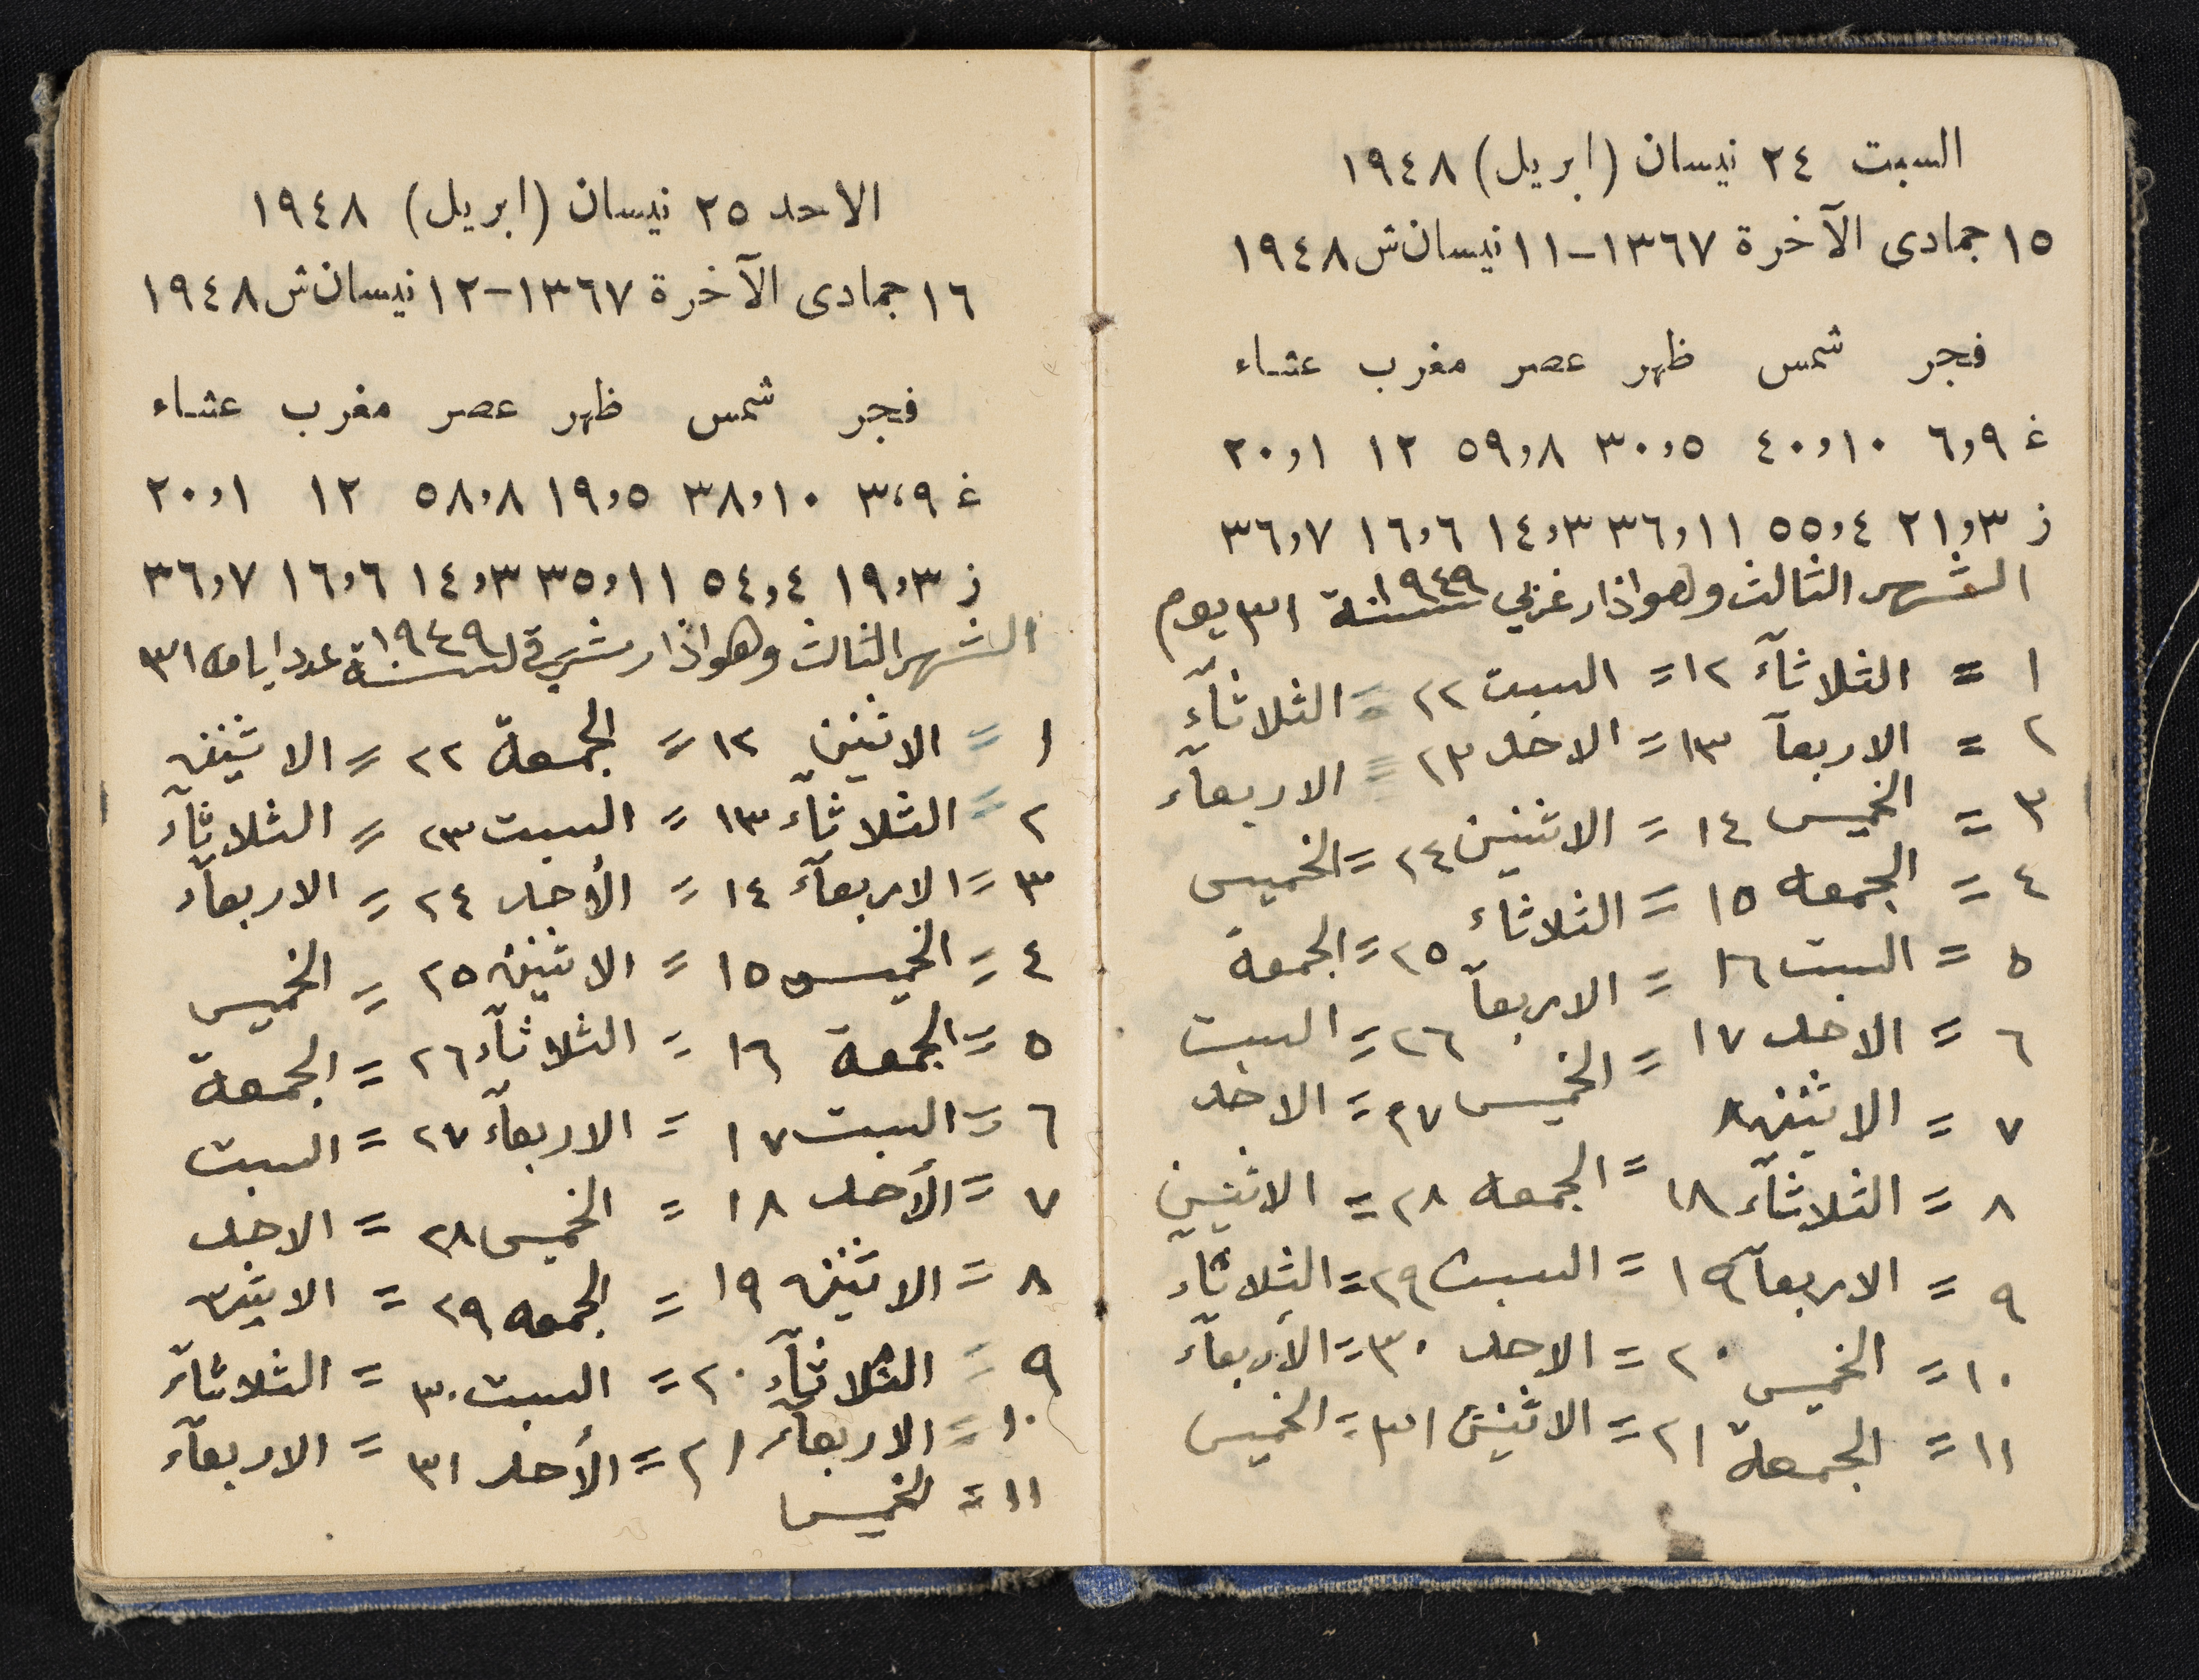 السبت ٢٤ نيسان (ابريل) ١٩٤٨
١٥ جمادى الآخرة ١٣٦٧-١١ نيسان ش ١٩٤٨
فجر شمس ظهر عصر مغرب عشاء
غ ٦,٩ ٤٠,١٠ ٣٠,٥ ٥٩,٨ ١٢ ٢٠,١
ز ٢١,٣ ٥٥,٤ ٣٦,١١ ١٤,٣ ١٦,٦ ٣٦,٧
الشهر الثالث وهو اذار غربي سنة ١٩٤٩ ٣١ يوم
١ = الثلاثآء ١٢ = السبت ٢٢ = الثلاثآء
٢ = الاربعآ ١٣ = الاحد ٢٣ = الاربعآء
٣ = الخميس ١٤ = الاثنين ٢٤ = الخميس
٤ = الجمعه ١٥ = الثلاثاء ٢٥ = الجمعة
٥ = السبت ١٦ = الاربعآ ٢٦ = السبت
٦ = الاحد ١٧ = الخميس ٢٧ = الاحد
٧ = الاثنين ١٨ = الجمعه ٢٨ = الاثنين
٨ = الثلاثآء ١٨
٩ = الاربعآ ١٩ = السبت ٢٩ = الثلاثآء
١٠ = الخميس ٢٠ = الاحد ٣٠ = الأربعآء
١١ = الجمعة ٢١ = الاثنين ٣١ = الخميس
الاحد ٢٥ نيسان (ابريل) ١٩٤٨
١٦ جمادى الآخرة ١٣٦٧-١٢ نيسان ش ١٩٤٨
فجر شمس ظهر عصر مغرب عشاء
غ ٣،٩ ٣٨,١٠ ١٩,٥ ٥٨,٨ ١٢ ٢٠,١
ز ١٩,٣ ٥٤,٤ ٣٥,١١ ١٤,٣ ١٦,٦ ٣٦,٧
الشهر الثالث وهو اذار شرقي لسنة ١٩٤٩ عدد ايامه ٣١
١ = الاثنين ١٢ = الجمعة ٢٢ = الاثنين
٢ = الثلاثآء ١٣ = السبت ٢٣ = الثلاثآء
٣ = الاربعآء ١٤ = الأحد ٢٤ = الاربعآء
٤ = الخميس ١٥ = الاثنين ٢٥ = الخميس
٥ = الجمعة ١٦ = الثلاثآء ٢٦ = الجمعة
٦ = السبت ١٧ = الاربعآء ٢٧ = السبت
٧ = الأحد ١٨ = الخميس ٢٨ = الاحد
٨ = الاثنين ١٩ = الجمعه ٢٩ = الاثنين
٩ = الثلاثآء ٢٠ = السبت ٣٠ = الثلاثآء
١٠ = الاربعآء ٢١ = الأحد ٣١ = الاربعآء
١١ = الخميس